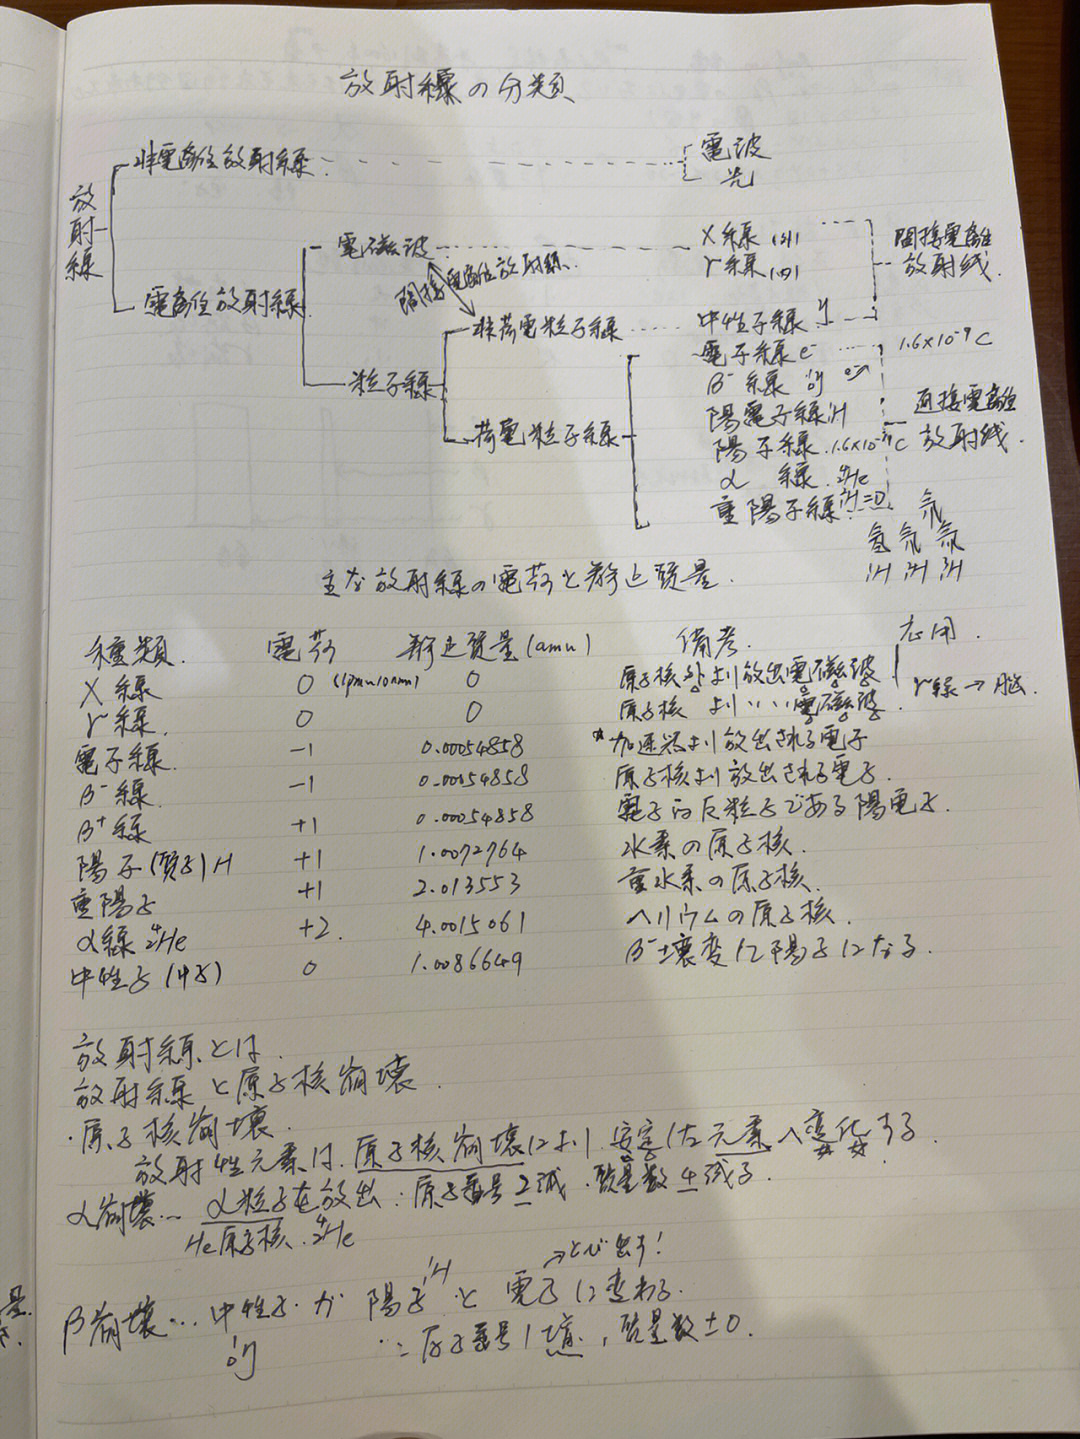 放射線の分類
非電離性放射線
電波
光
放射線
電磁波
X線
γ線
間接電離
放射线.
間接電離性放射線.
電離性放射線
非荷電粒子線
中性子線
電子線 e⁻
1.6×10⁻⁹ C
粒子線
β⁻線
e⁻
荷電粒子線
陽電子線
直接電離
放射线.
陽子線. 1.6×10⁻¹⁹ C
α 線. ⁴₂He
重陽子線 ²₁H=D
氘
氢 氘 氚
¹₁H ²₁H ³₁H
主な放射線の電荷と静止質量.
種類. 電荷 静止質量(amu) 備考. 応用.
X線 0 (1pm~10nm) 0 原子核外より放出電磁波
γ線. 0 0 原子核 より〃〃電磁波. γ線→脳.
電子線. -1 0.00054858 *加速器より放出される電子
β⁻線. -1 0.00054858 原子核より放出される電子.
β⁺線 +1 0.00054858 電子の反粒子である陽電子.
陽子(質子)H +1 1.0072764 水素の原子核.
重陽子 +1 2.013553 重水素の原子核.
α線 ⁴₂He +2. 4.0015061 ヘリウムの原子核.
中性子(中子) 0 1.0086649 β⁻壊変して陽子になる.
放射線とは.
放射線と原子核崩壊.
・原子核崩壊.
放射性元素は.原子核崩壊により.安定した元素へ変化する.
α崩壊… α粒子を放出:原子番号2減.質量数4減る.
He原子核. ⁴₂He
→とび出す!
β崩壊… 中性子が 陽子 ¹₁H と 電子に変わる.
¹₀n ∴原子番号1増, 質量数±0.